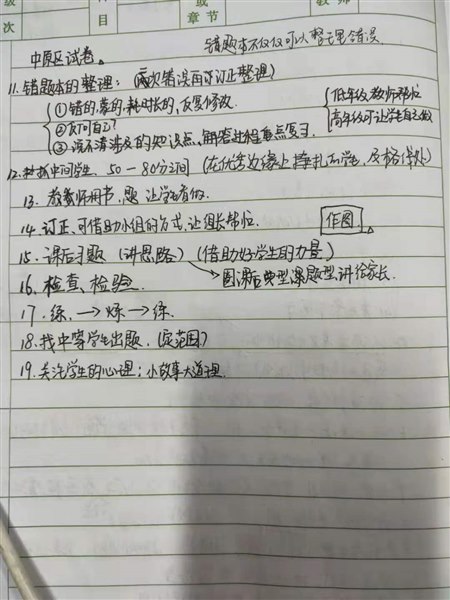 级 次 或 章节 教师
错题本不仅仅可以整理错误.
中原区试卷。
11. 错题本的整理: (两次错误再可订正整理)
① 错的.蒙的.耗时长的, 反复修改.
② 反问自己?
③ 说不清涉及的知识点, 解答过程重点复习.
低年级 教师帮忙
高年级可让学生自己做
12. 中间学生. 50—80分之间 (在优秀边缘上挣扎的学生, 及格保处)
13. 教师用书.题 让学生有做.
14. 订正.可借助小组的方式.让组长帮忙. 作图.
15. 课后习题 (讲思路) (借助好学生的力量)
→ 圈课后典型课题型讲给家长.
16. 检查、检验.
17. 练. → 炼 → 练.
18. 找中等学生出题. (定范围)
19. 关注学生的心理; 小故事大道理.